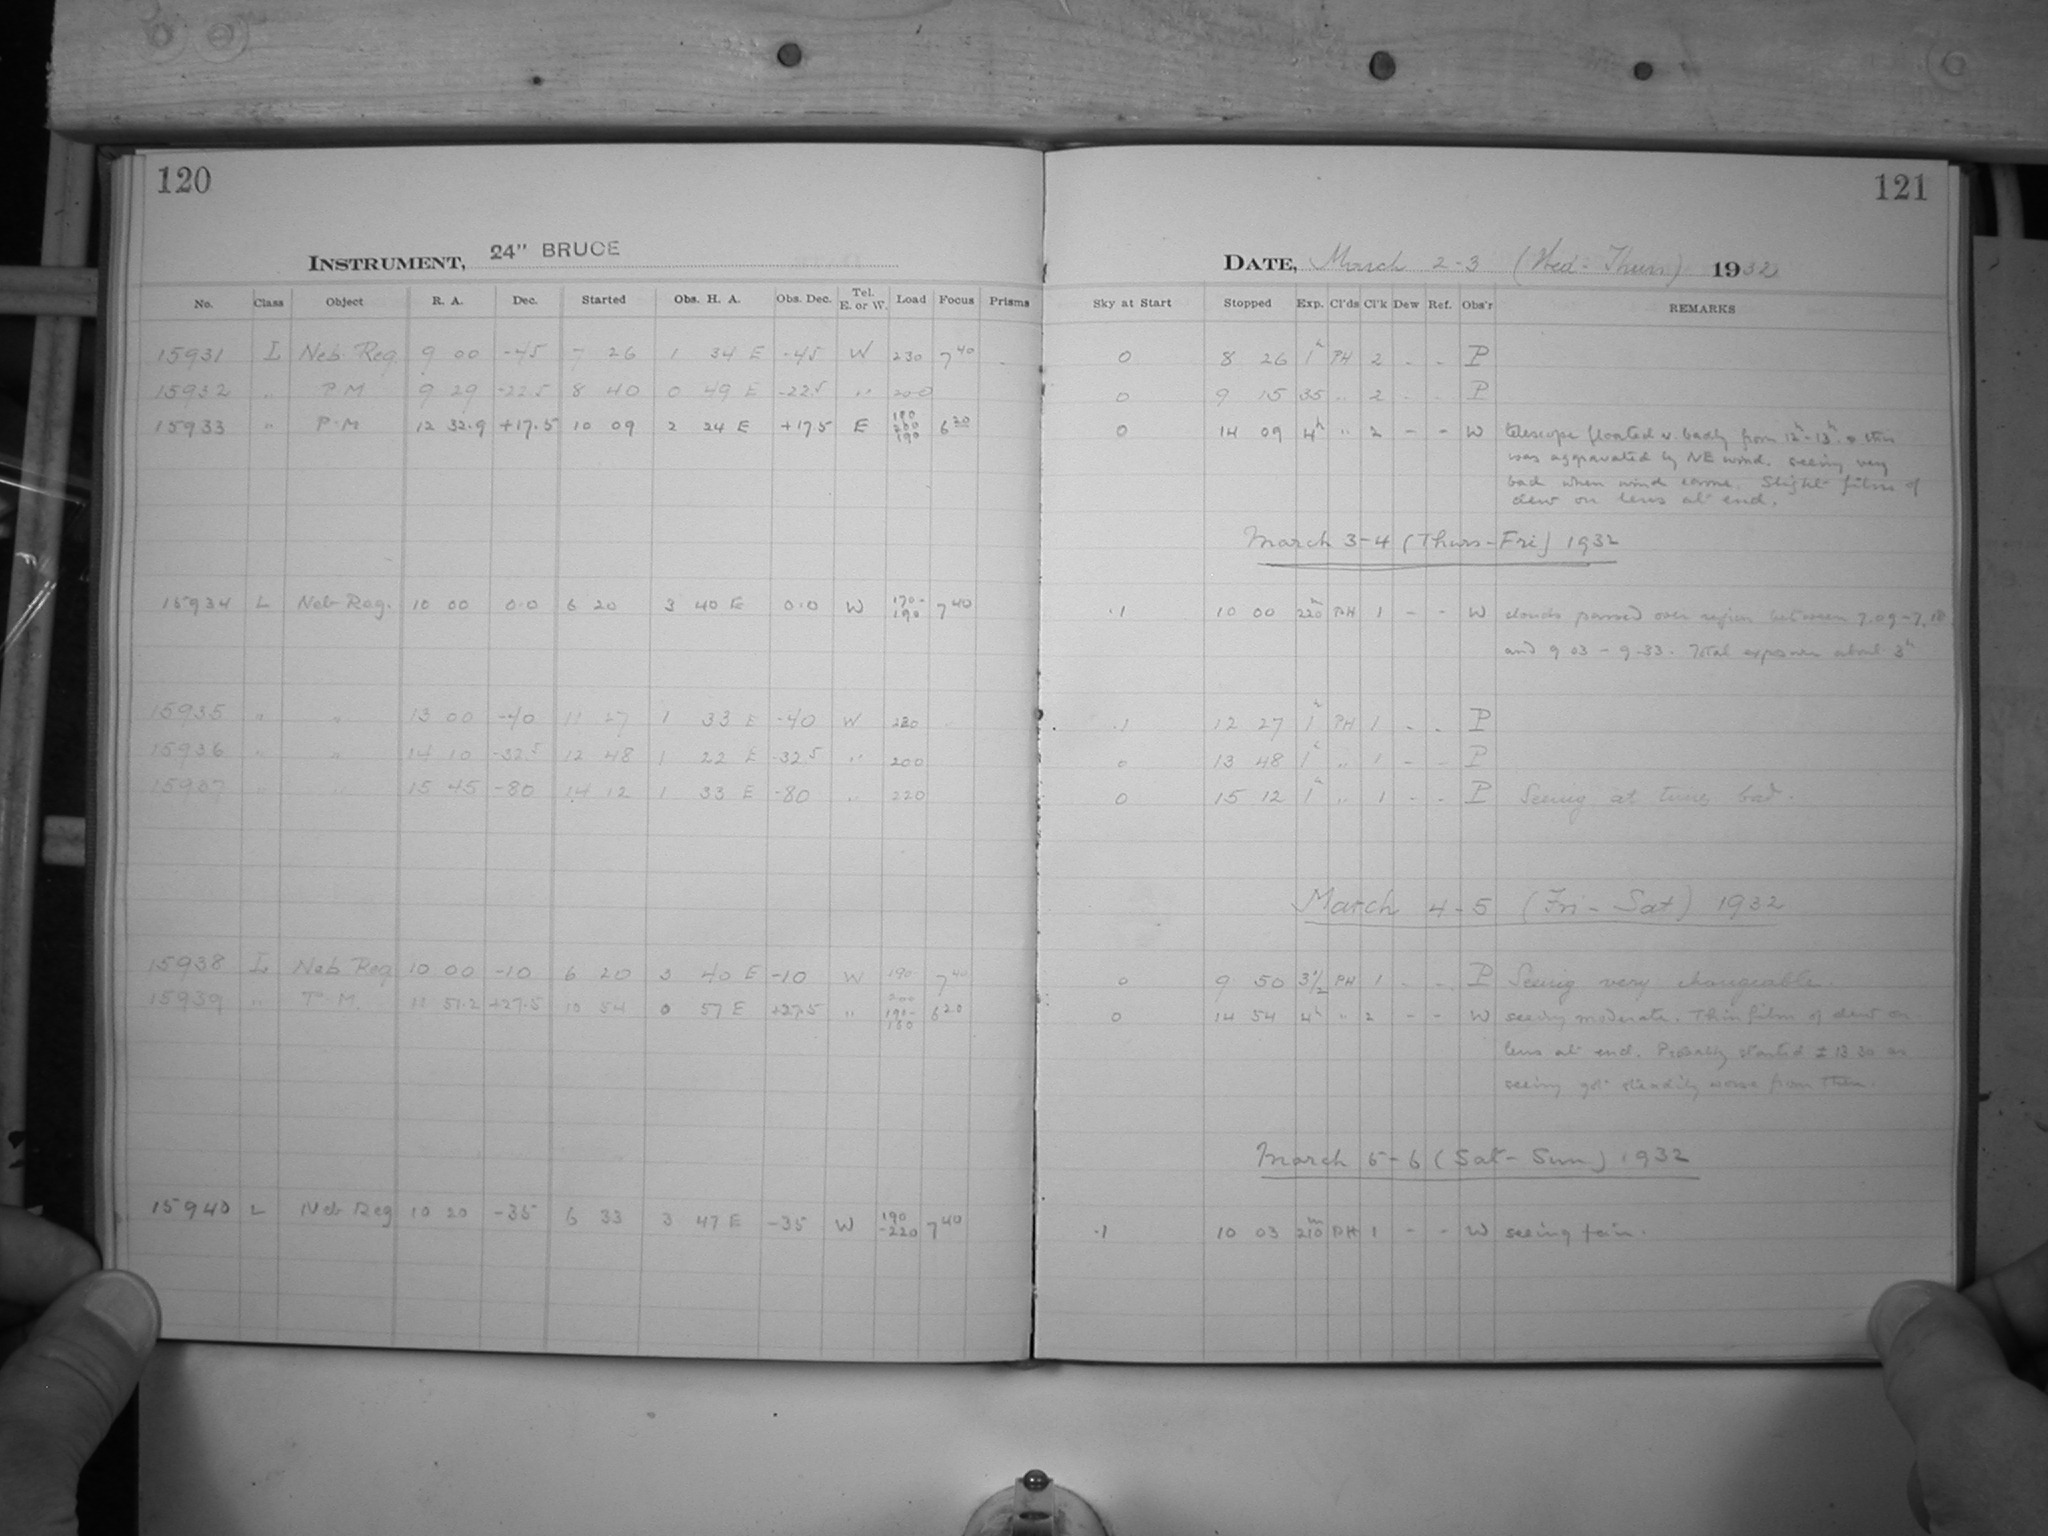 120
INSTRUMENT, 24" BRUCE
No. Class Object R. A. Dec. Started Obs. H. A. Obs. Dec. Tel. E. or W. Load Focus Prisms
15931 L Neb. Reg. 9 00 -45 7 26 1 34 E -45 W 230 7 40
15932 " P.M 9 29 -22.5 8 40 0 49 E -22.5 " 200
15933 " P.M 12 32.9 +17.5 10 09 2 24 E +17.5 E 190 200 190 6 20
15934 L Neb Reg. 10 00 0.0 6 20 3 40 E 0.0 W 170-190 7 40
15935 " " 13 00 -40 11 27 1 33 E -40 W 230 "
15936 " " 14 10 -32.5 12 48 1 22 E -32.5 " 200
15937 " " 15 45 -80 14 12 1 33 E -80 " 220
15938 L Neb Reg 10 00 -10 6 20 3 40 E -10 W 190 7 40
15939 " P. M. 11 51.2 +27.5 10 54 0 57 E +27.5 " 200 190- 180 6 20
15940 L Neb Reg 10 20 -35 6 33 3 47 E -35 W 190-220 7 40
121
DATE, March 2-3 (Wed - Thurs) 1932
Sky at Start Stopped Exp. Cl'ds Cl'k Dew Ref. Obs'r REMARKS
0 8 26 1h PH 2 - - P
0 9 15 35 " 2 - - P
0 14 09 4h " 2 - - W telescope floated v. badly from 12h-13h & this
was aggravated by NE wind. seeing very
bad when wind came. Slight film of
dew on lens at end.
March 3-4 (Thurs-Fri) 1932
.1 10 00 220m PH 1 - - W clouds passed over region between 7.09-7.18
and 9 03 - 9-33. Total exposure about 3h
.1 12 27 1h PH 1 - - P
0 13 48 1h " 1 - - P
0 15 12 1h " 1 - - P Seeing at times bad.
March 4-5 (Fri - Sat) 1932
0 9 50 3 1/2 PH 1 - - P Seeing very changeable.
0 14 54 4h " 2 - - W seeing moderate. Thin film of dew on
lens at end. Probably started ± 13 30 as
seeing got steadily worse from then.
March 5-6 (Sat-Sun) 1932
.1 10 03 210m PH 1 - - W seeing fair.